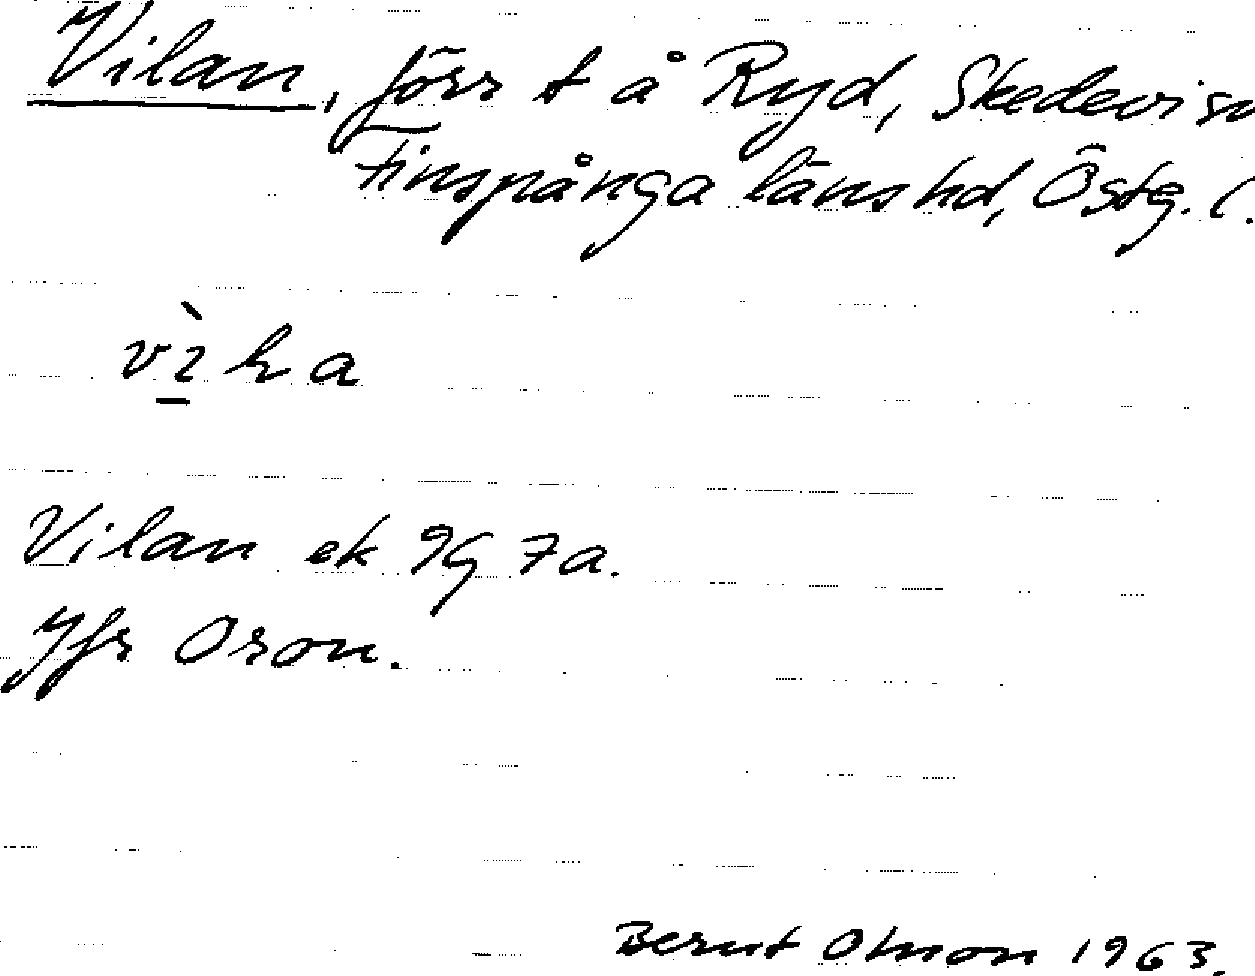 Vilan, förr t å Ryd, Skedevi sn
Finspånga länshd, Östg. l.
vila
Vilan ek 9G 7a.
Jfr Oron.
Bernt Olson 1963.